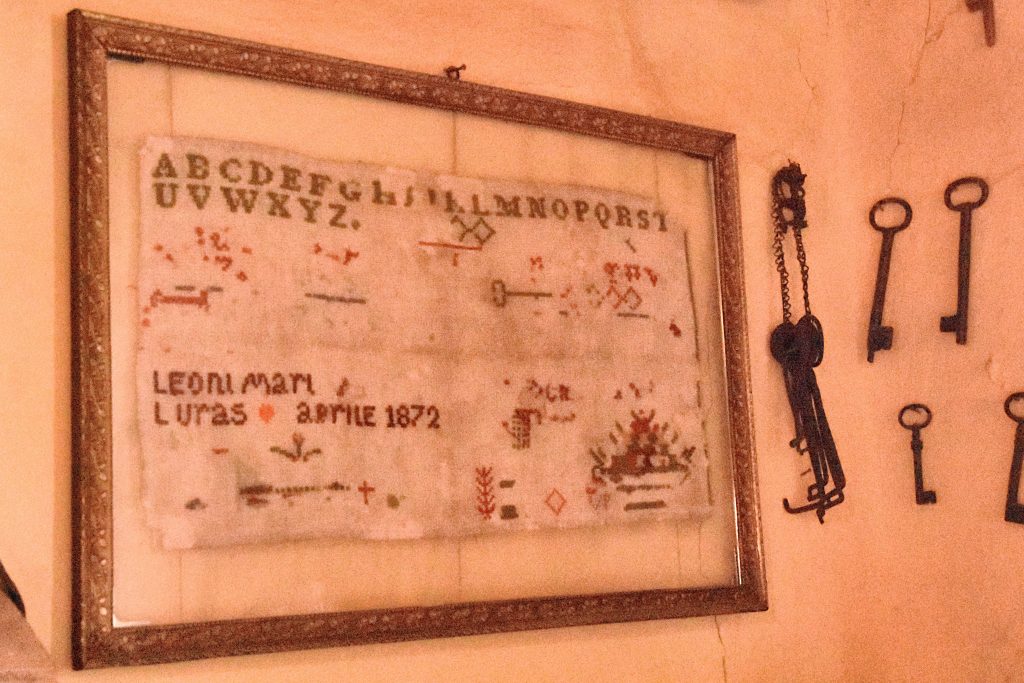 ABCDEFGHIJKLMNOPQRST
UVWXYZ.
LEONI MARI
LURAS APRILE 1872